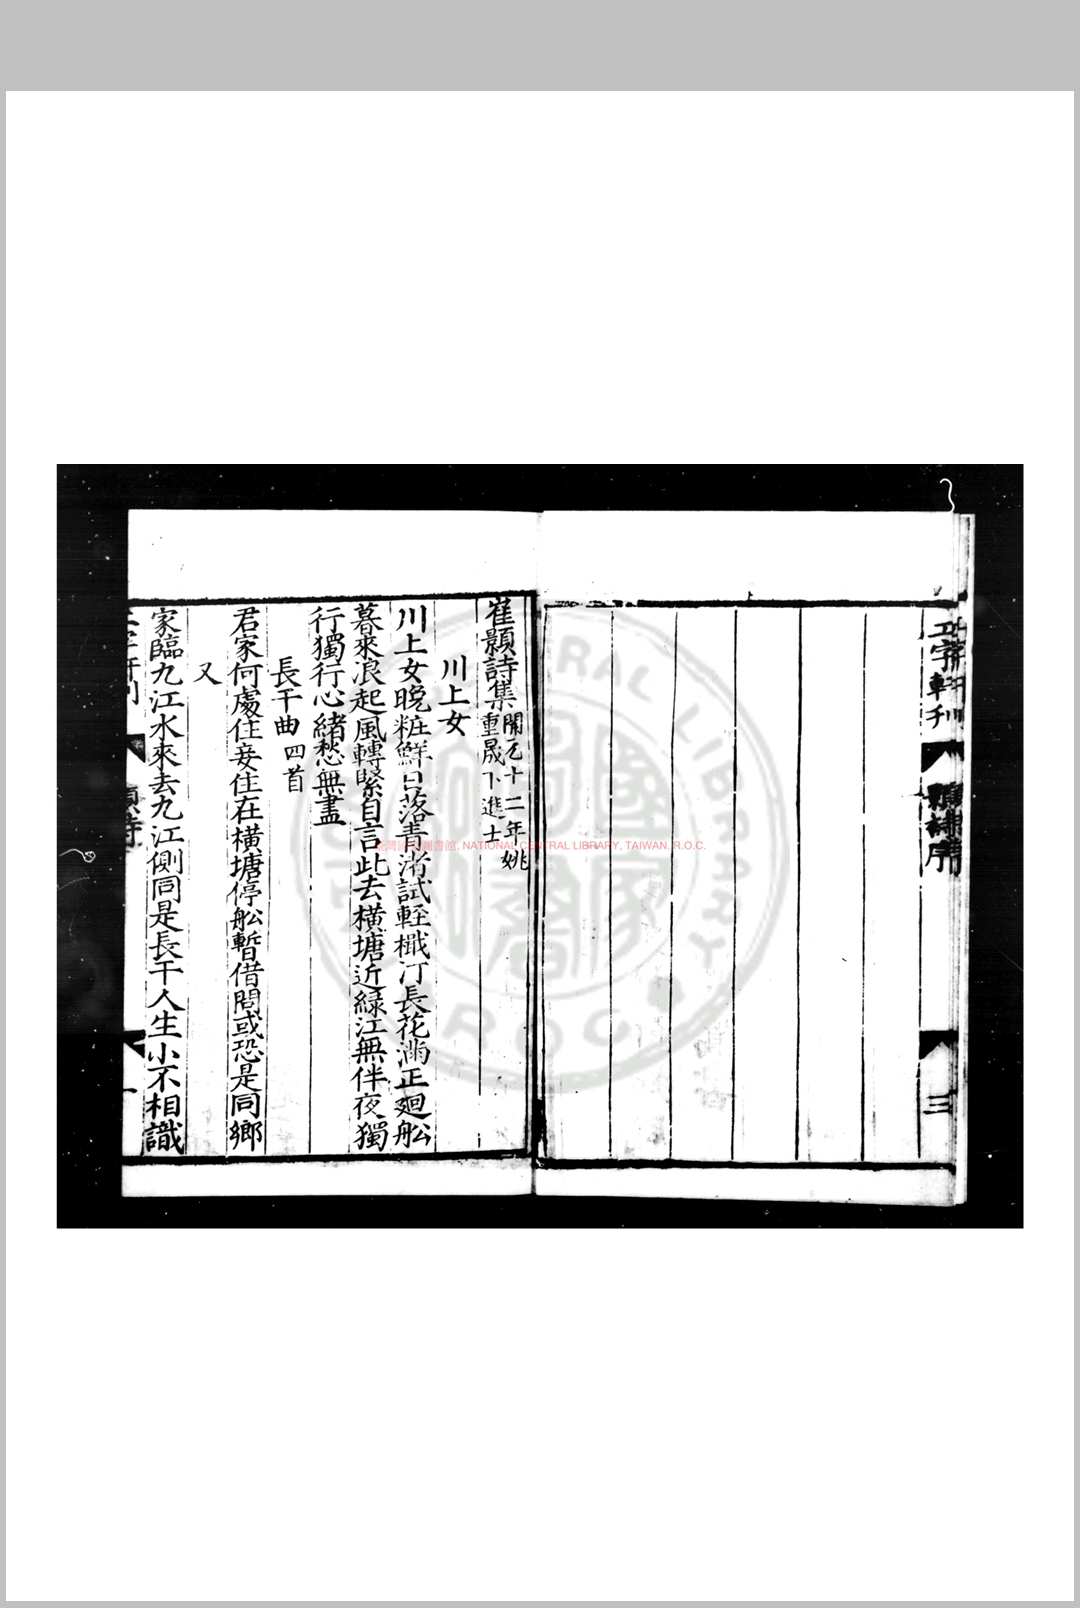 正字軒刊
三
崔顥詩集 開元十二年姚重晟下進士
川上女
川上女晚粧鮮日落青渚試輕檝汀長花滿正廻舩
暮來浪起風轉緊自言此去橫塘近綠江無伴夜獨
行獨行心緒愁無盡
長干曲 四首
君家何處住妾住在橫塘停舩暫借問或恐是同鄉
又
家臨九江水來去九江側同是長干人生小不相識
NATIONAL CENTRAL LIBRARY, TAIWAN, R.O.C.